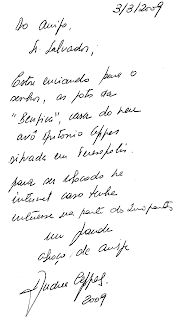 3/3/2009
Ao Amigo,
Sr. Salvador,
Estou enviando para o
senhor, as fotos da
"Benfica", casa do meu
avô Antonio Ceppas
situada em Teresópolis.
para ser colocado na
internet caso tenha
interesse na parte do
um grande
abraço, do amigo
Ceppas
2009